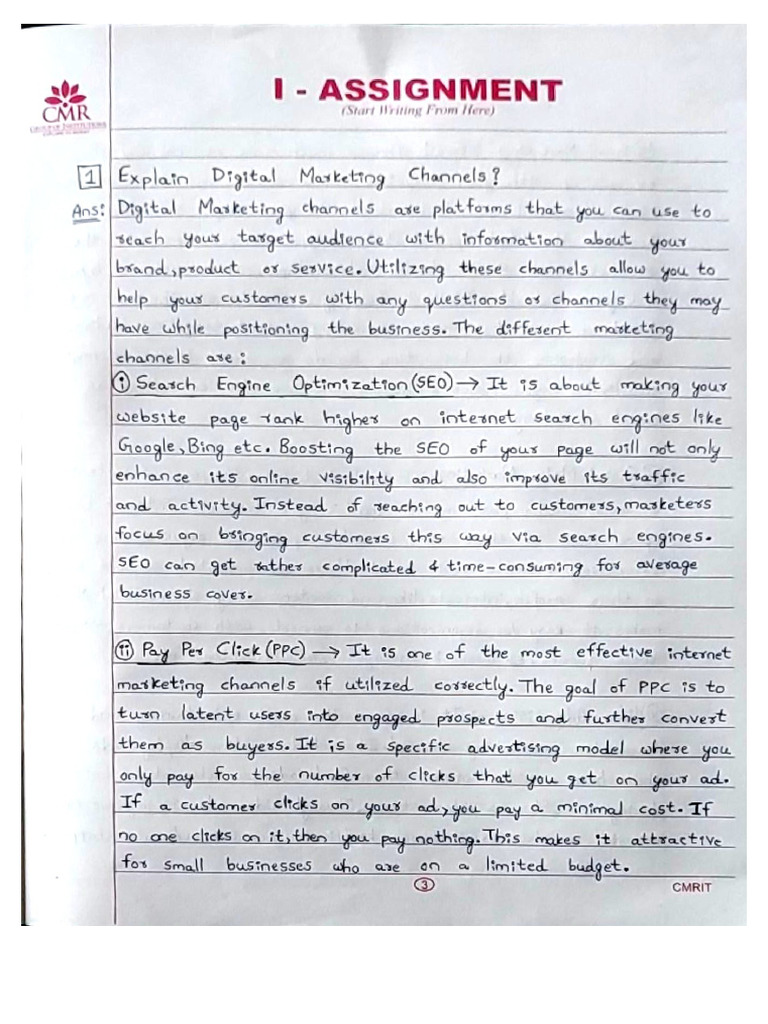 I - ASSIGNMENT
(Start Writing From Here)
CMR
GROUP OF INSTITUTIONS
1 Explain Digital Marketing Channels?
Ans: Digital Marketing channels are platforms that you can use to
reach your target audience with information about your
brand, product or service. Utilizing these channels allow you to
help your customers with any questions or channels they may
have while positioning the business. The different marketing
channels are:
(i) Search Engine Optimization (SEO) → It is about making your
website page rank higher on internet search engines like
Google, Bing etc. Boosting the SEO of your page will not only
enhance its online visibility and also improve its traffic
and activity. Instead of reaching out to customers, marketers
focus on bringing customers this way via search engines.
SEO can get rather complicated & time-consuming for average
business cover.
(ii) Pay Per Click (PPC) → It is one of the most effective internet
marketing channels if utilized correctly. The goal of PPC is to
turn latent users into engaged prospects and further convert
them as buyers. It is a specific advertising model where you
only pay for the number of clicks that you get on your ad.
If a customer clicks on your ad, you pay a minimal cost. If
no one clicks on it, then you pay nothing. This makes it attractive
for small businesses who are on a limited budget.
3
CMRIT